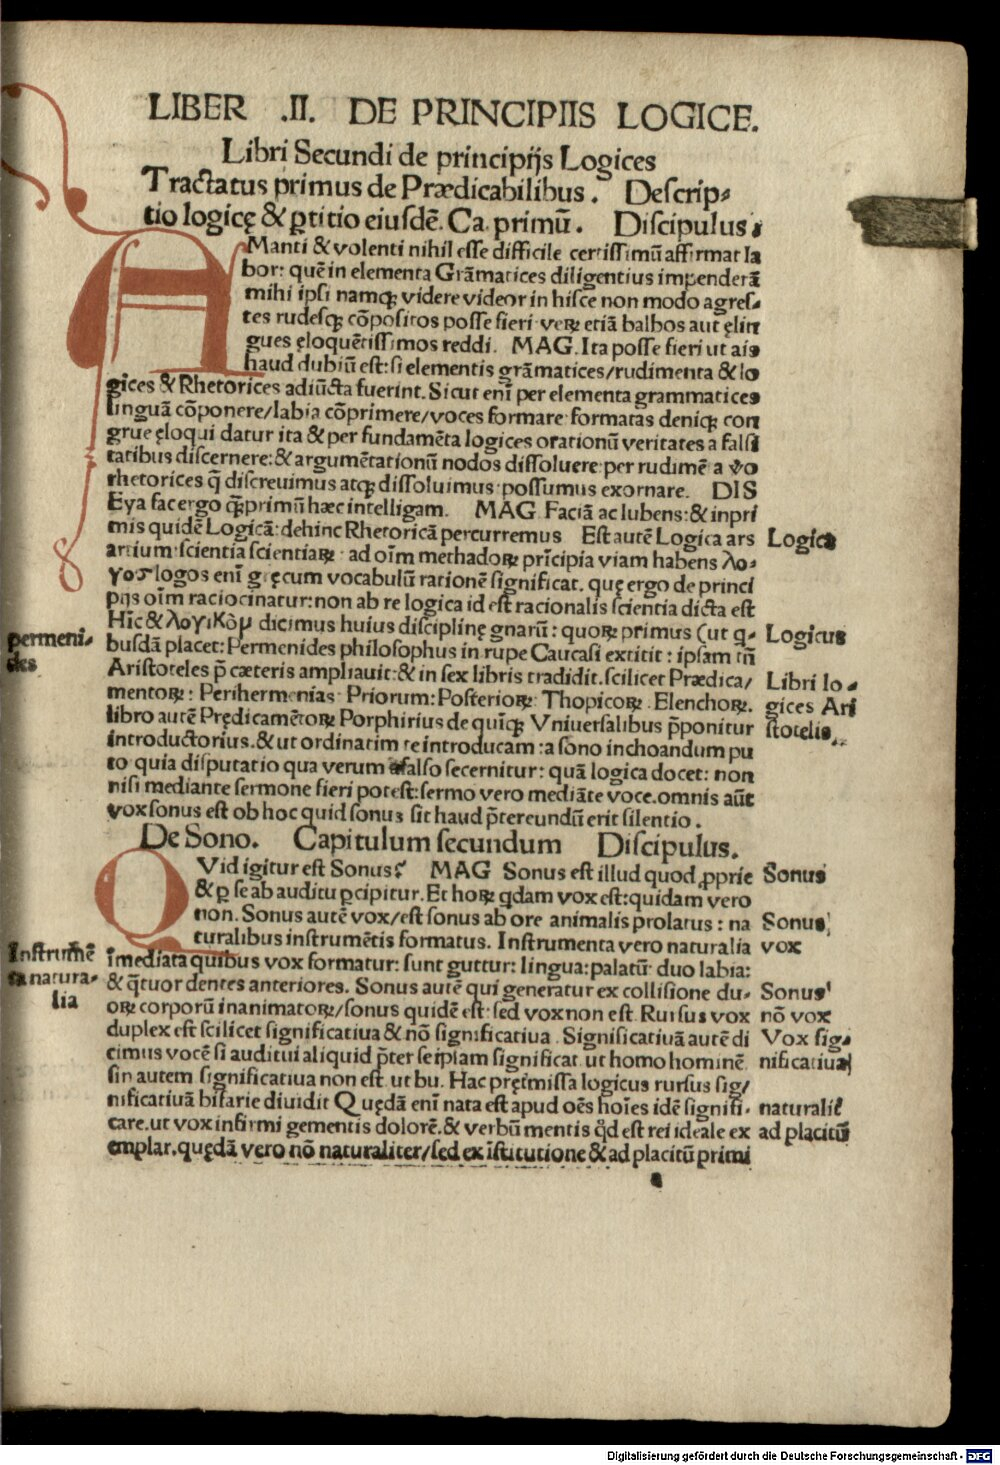 LIBER .II. DE PRINCIPIIS LOGICE.
Libri Secundi de principijs Logices
Tractatus primus de Prædicabilibus. Descrip-
tio logicę & ꝑtitio eiusdē. Ca. primū. Discipulus.
AManti & volenti nihil esse difficile certissimū affirmat la
bor: quē in elementa Grāmatices diligentius impenderā
mihi ipsi namqꝫ videre videor in hisce non modo agres-
tes rudesqꝫ cōpositos posse fieri verꝝ etiā balbos aut ęlin
gues ęloquētissimos reddi. MAG. Ita posse fieri ut ais
haud dubiū est: si elementis grāmatices/rudimenta & lo
gices & Rhetorices adiūcta fuerint. Sicut enī per elementa grammatices
linguā cōponere/labia cōprimere/voces formare formatas deniqꝫ con
grue ęloqui datur ita & per fundamēta logices orationū veritates a falsi
tatibus discernere: & argumētationū nodos dissoluere per rudimē a vo
rhetorices q̄ discreuimus atqꝫ dissoluimus possumus exornare. DIS
Eya fac ergo q̄ꝫprimū hæc intelligam. MAG. Faciā ac lubens: & inpri
mis quidē Logicā: dehinc Rhetoricā percurremus Est autē Logica ars
artium scientia scientiaꝝ ad oīm methadoꝝ prīcipia viam habens λο-
γοσ logos enī gręcum vocabulū rationē significat. quę ergo de princi
pijs oīm raciocinatur: non ab re logica id est racionalis scientia dicta est
Hīc & λογικὸμ dicimus huius disciplinę gnarū: quoꝝ primus (ut q-
busdā placet: Permenides philosophus in rupe Caucasi extitit: ipsam tn̄
Aristoteles p̄ cæteris ampliauit: & in sex libris tradidit. scilicet Prædica/
mentoꝝ: Perihermenias Priorum: Posterioꝝ Thopicoꝝ Elenchoꝝ.
libro autē Prędicamētoꝝ Porphirius de quīqꝫ Vniuersalibus p̄ponitur
introductorius. & ut ordinatim te introducam: a sono inchoandum pu
to quia disputatio qua verum a falso secernitur: quā logica docet: non
nisi mediante sermone fieri potest: sermo vero mediāte voce. omnis aūt
vox sonus est ob hoc quid sonus sit haud p̄tereundū erit silentio.
De Sono. Capitulum secundum Discipulus.
QVid igitur est Sonus? MAG Sonus est illud quod ꝓprie
& ꝑ se ab auditu ꝑcipitur. Et hoꝝ qdam vox est: quidam vero
non. Sonus autē vox/est sonus ab ore animalis prolatus: na
turalibus instrumētis formatus. Instrumenta vero naturalia
īmediata quibus vox formatur: sunt guttur: lingua: palatū duo labia:
& q̄tuor dentes anteriores. Sonus autē qui generatur ex collisione du-
oꝝ corporū inanimatoꝝ/sonus quidē est sed vox non est. Rursus vox
duplex est scilicet significatiua & nō significatiua. Significatiuā autē di
cimus vocē si auditui aliquid p̄ter se ipsam significat ut homo hominē
sin autem significatiua non est ut bu. Hac prętmissa logicus rursus sig/
nificatiuā bifarie diuidit Quędā enī nata est apud oēs hoīes idē signifi-
care. ut vox infirmi gementis dolorē. & verbū mentis qd̄ est rei ideale ex
emplar. quędā vero nō naturaliter/sed ex īstitutione & ad placitū primi
Logica
Logicus
Libri lo-
gices Ari
stotelis
Sonus
Sonus
vox
Sonus
nō vox
Vox sig-
nificatiua
naturalit
ad placitū
permeni-
des
Instrumē
ta natura-
lia
Digitalisierung gefördert durch die Deutsche Forschungsgemeinschaft - DFG